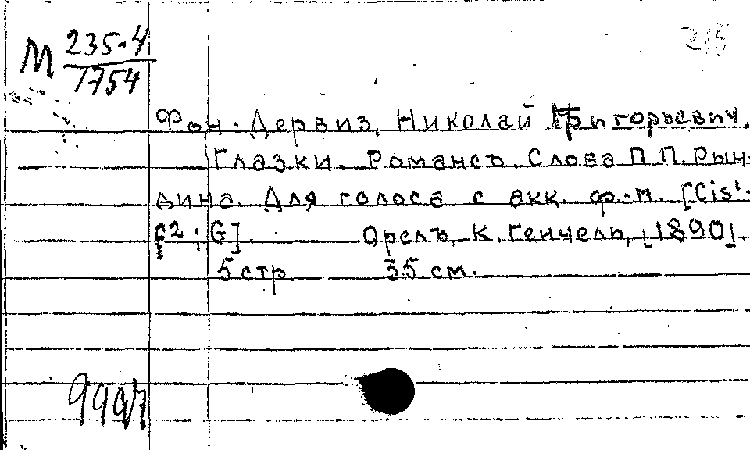 М 235-4
7754
215
Фон-Дервиз, Николай Григорьевич.
Глазки. Романсъ. Слова П.П. Рын-
дина. Для голоса с акк. ф-п. [Cis¹-
f2; G]
Орелъ, К. Генчель, [1890].
5 стр 35 см.